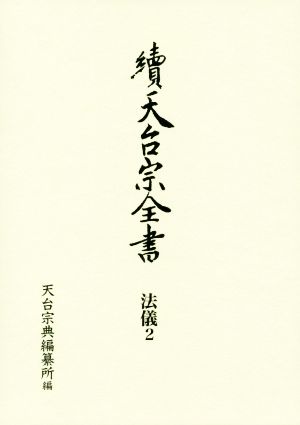 續天台宗全書
法儀2
天台宗典編纂所 編